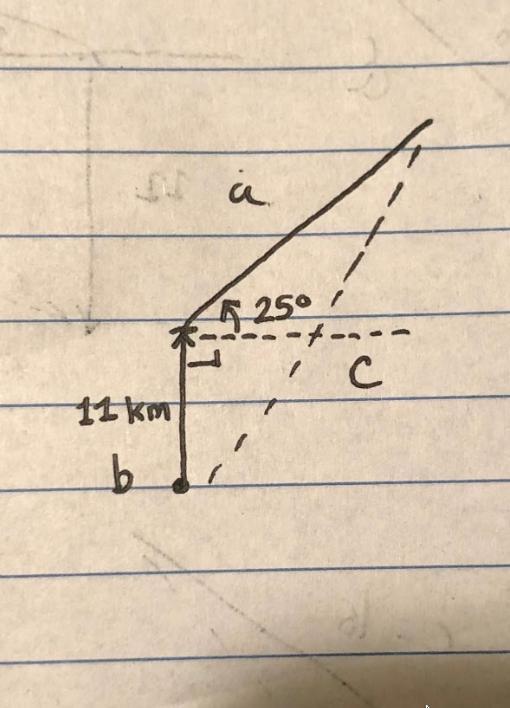 a
25°
C
11 km
b